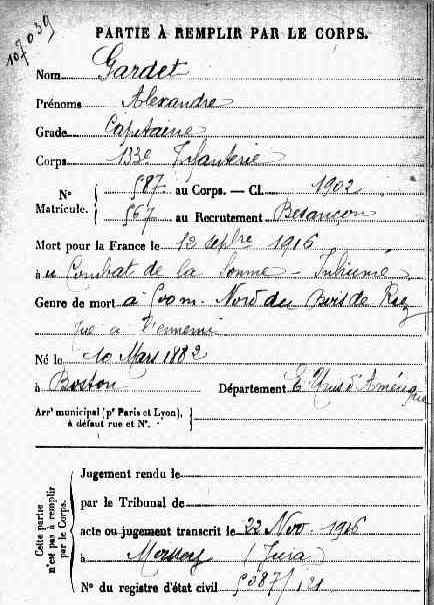 107039
PARTIE À REMPLIR PAR LE CORPS.
Nom Gardet
Prénoms Alexandre
Grade Capitaine
Corps 133e Infanterie
N° Matricule. 587 au Corps. — Cl. 1902
567 au Recrutement Besançon
Mort pour la France le 12 septbre 1916
à u Combat de la Somme – Inhumé
Genre de mort à 500m. Nord du Bois de Riez
tué à l'ennemi
Né le 10 Mars 1882
à Boston Département Ets Unis d'Amérique
Arrt municipal (pr Paris et Lyon), à défaut rue et N°.
Cette partie n'est pas à remplir par le Corps.
Jugement rendu le
par le Tribunal de
acte ou jugement transcrit le 22 Nov. 1916
à (Jura)
N° du registre d'état civil 5387/121